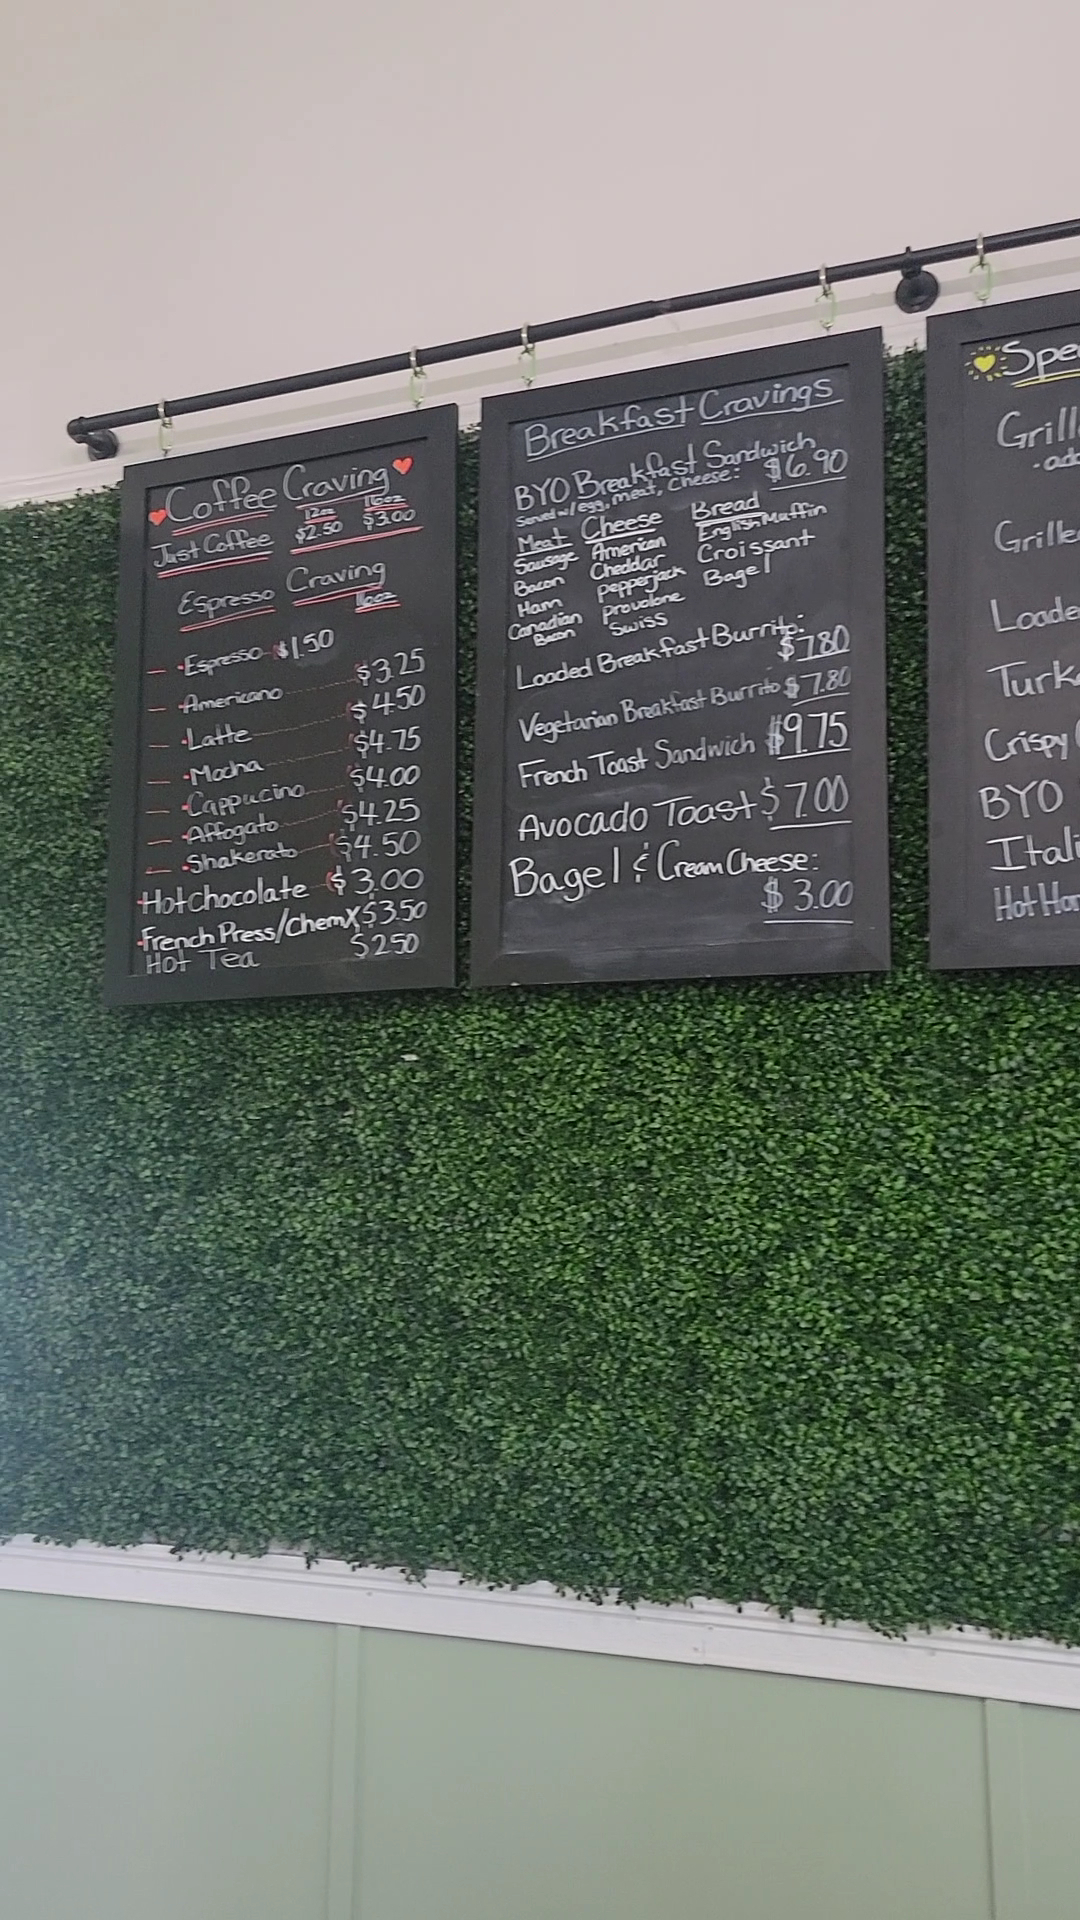 Coffee Craving
12oz 16oz
Just Coffee $2.50 $3.00
Espresso Craving
16oz
Espresso $1.50
Americano $3.25
Latte $4.50
Mocha $4.75
Cappucino $4.00
Affogato $4.25
Shakerato $4.50
Hot chocolate $3.00
French Press/ChemX $3.50
Hot Tea $2.50
Breakfast Cravings
BYO Breakfast Sandwich
Served w/egg, meat, cheese: $6.90
Meat Cheese Bread
Sausage American English Muffin
Bacon Cheddar Croissant
Ham Pepperjack Bagel
Canadian Provolone
Bacon Swiss
Loaded Breakfast Burrito:
$7.80
Vegetarian Breakfast Burrito $7.80
French Toast Sandwich $9.75
Avocado Toast $7.00
Bagel & Cream Cheese:
$3.00
Spe
Grill
·add
Grille
Loade
Turk
Crispy
BYO
Itali
Hot Ha